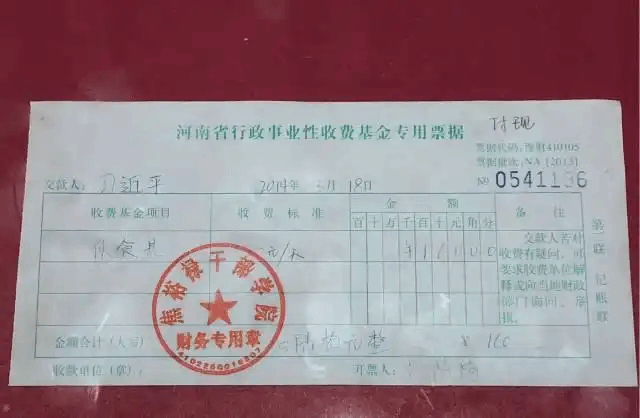 河南省行政事业性收费基金专用票据
付现
票据代码:豫财410105
票据批次:NA[2013]
交款人: 习近平 2014年 3月 18日 № 0541196
收费基金项目 收费标准 金额 备注
百十万千百十元角分
伙食费 元/天 ¥16000
交款人若对
收费有疑问,可
要求收费单位解
释或向当地财政
部门询问、举
报。
第一联 记账联
焦裕禄干部学院
财务专用章
4102250016207
金额合计(大写) 陆拾元整 ¥160
收款单位(章): 开票人: